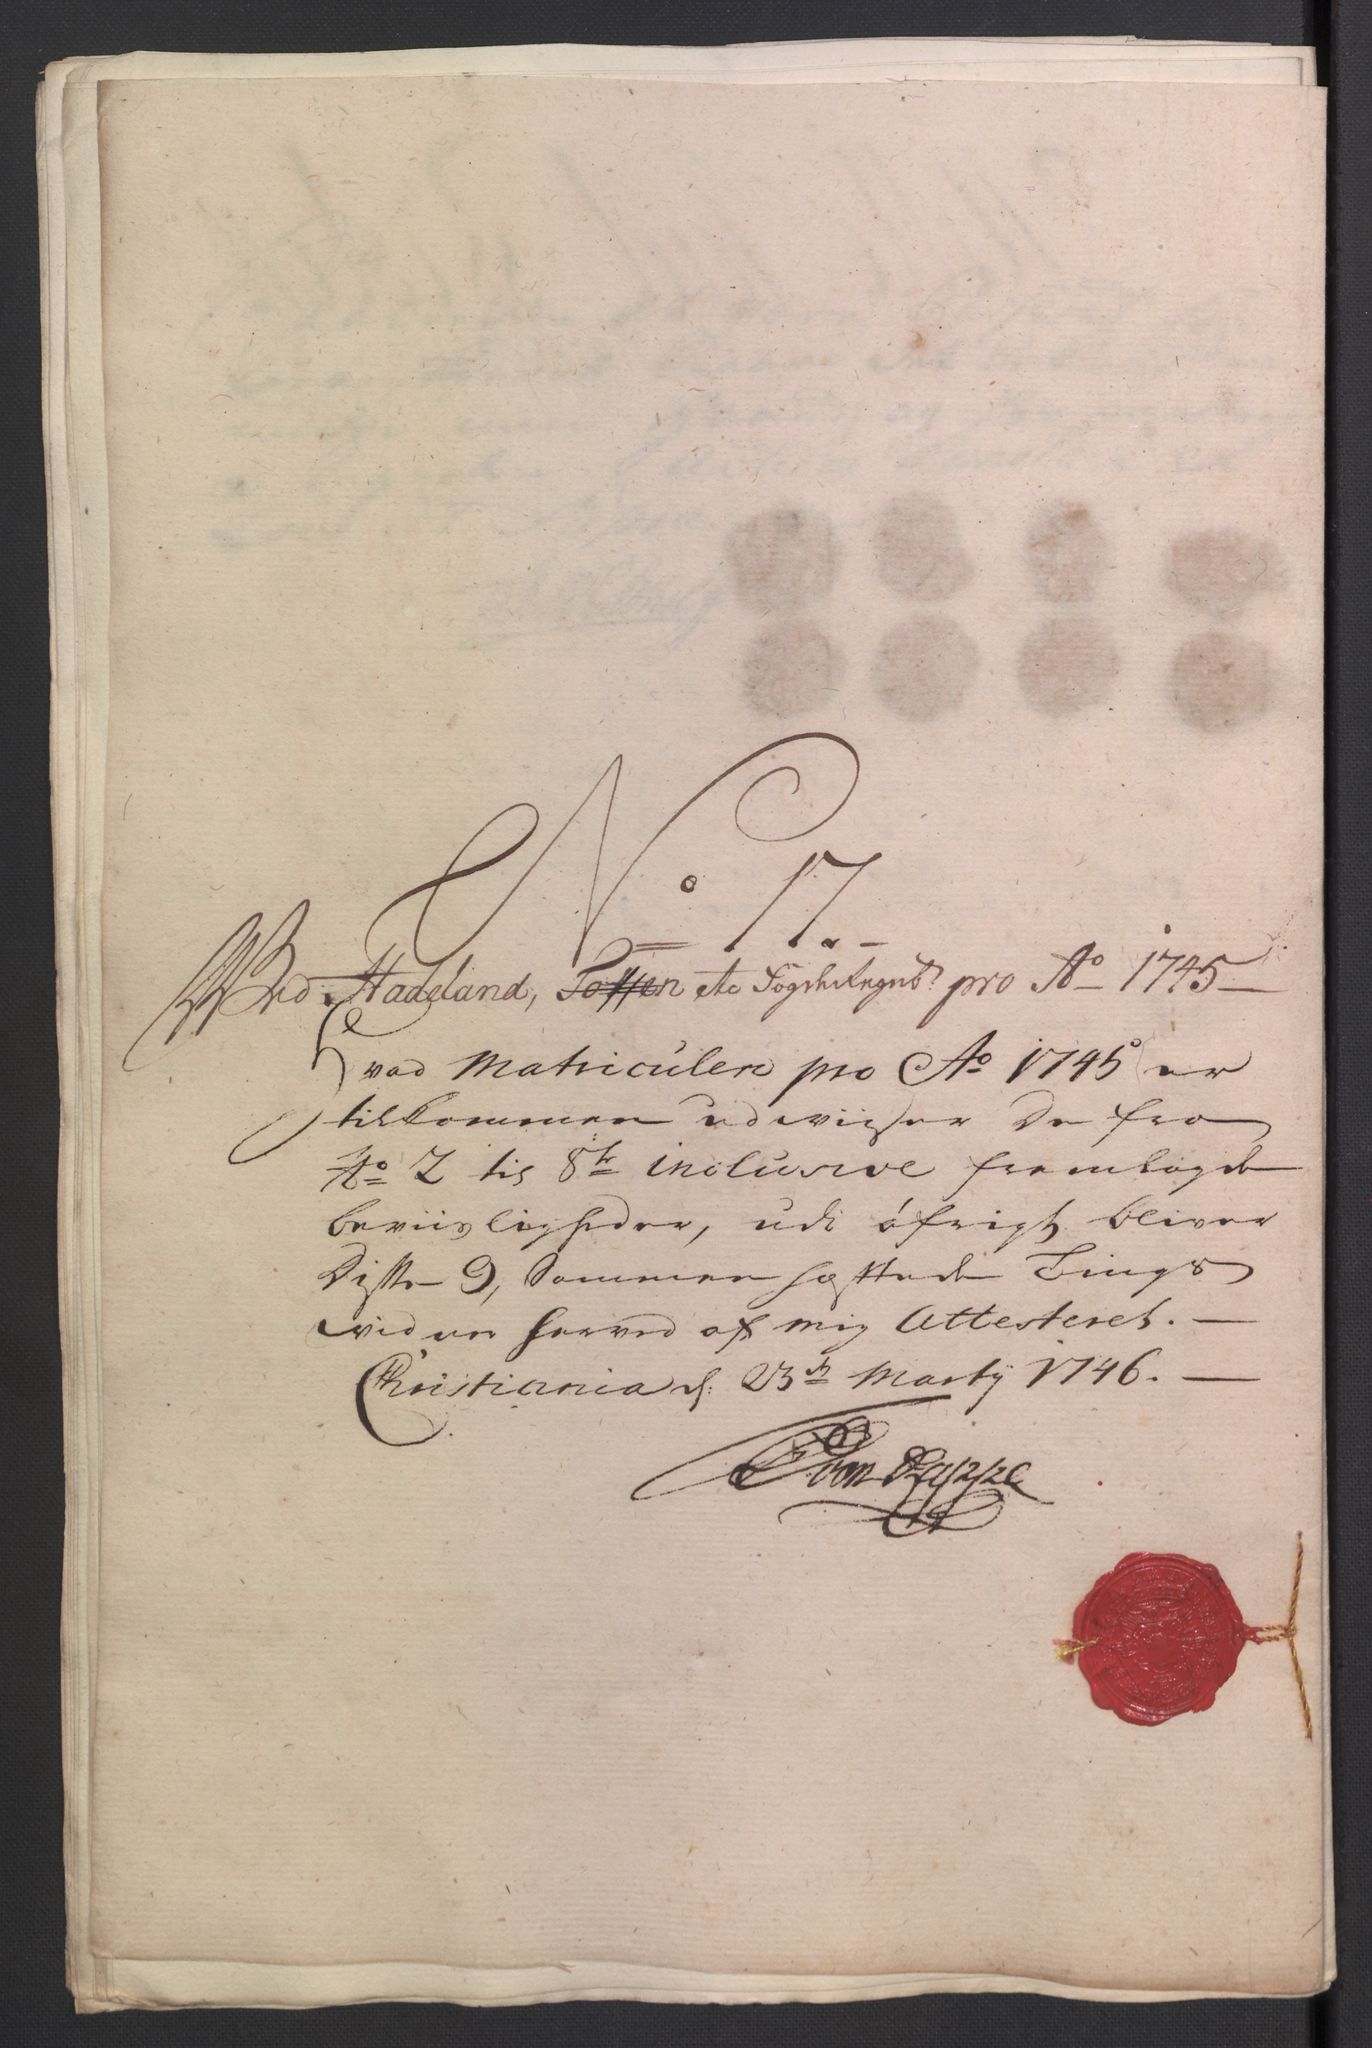 No 17.
Wed Hadeland, Totten etc Fogderegnsb. pro Ao 1745
Hvad Matriculen pro Ao 1745 er
tilkommen udwiiser De fra
No 2 til 8te inclusive fremlagde
beviisligheder, udi öfrigt bliver
Disse 9, Sammenhæftede Tings
widner herved af mig Attesteret.
Christiania d: 23de Marty 1746.
von Rappe